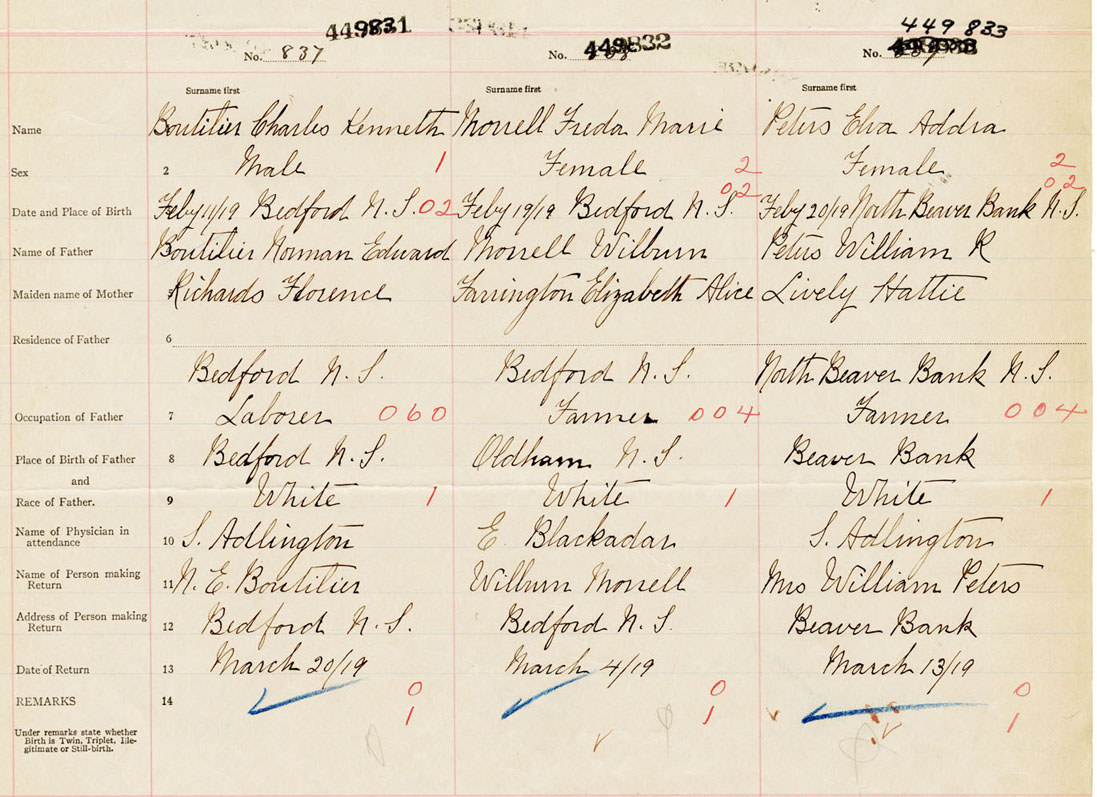 449831
449832
449 833
No. 837
No.
No.
Surname first
Surname first
Surname first
Name Boutilier Charles Kenneth Morrell Freda Marie Peters Elva Addra
Sex 2 Male 1 Female 2 Female 2
Date and Place of Birth Feby 11/19 Bedford N.S. 02 Feby 19/19 Bedford N.S. 02 Feby 20/19 North Beaver Bank N.S. 02
Name of Father Boutilier Norman Edward Morrell Wilburn Peters William R
Maiden name of Mother Richards Florence Farrington Elizabeth Alice Lively Hattie
Residence of Father 6
Bedford N.S. Bedford N.S. North Beaver Bank N.S.
Occupation of Father 7 Laborer 060 Farmer 004 Farmer 004
Place of Birth of Father 8 Bedford N.S. Oldham N.S. Beaver Bank
and
Race of Father. 9 White 1 White 1 White 1
Name of Physician in
attendance 10 S. Adlington E Blackadar S. Adlington
Name of Person making
Return 11 N. E. Boutilier Wilburn Morrell Mrs William Peters
Address of Person making
Return 12 Bedford N.S. Bedford N.S. Beaver Bank
Date of Return 13 March 20/19 March 4/19 March 13/19
REMARKS 14 0 0 0
1 1 1
Under remarks state whether
Birth is Twin, Triplet, Ille-
gitimate or Still-birth.